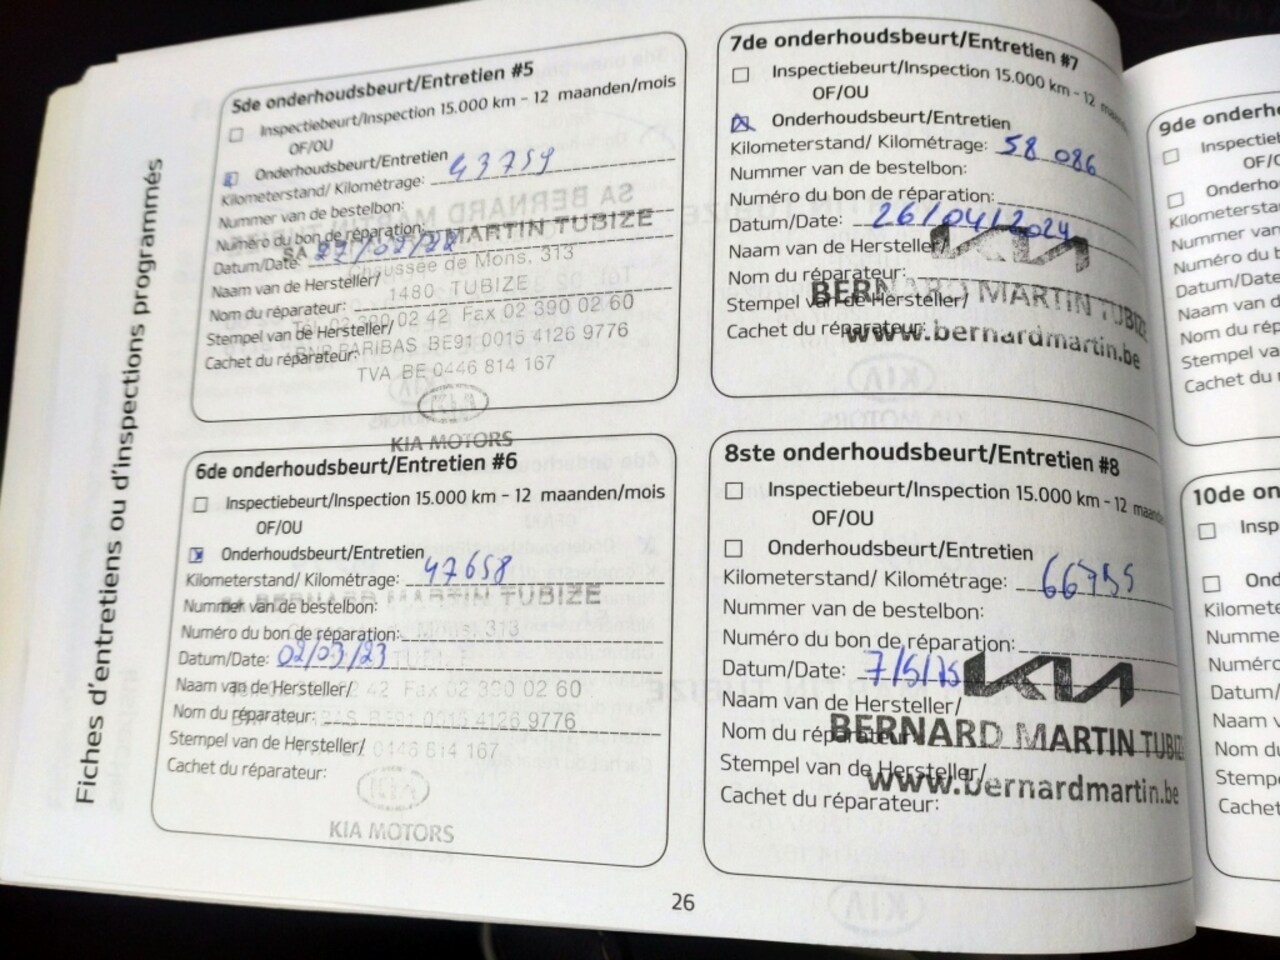 Fiches d'entretiens ou d'inspections programmés
5de onderhoudsbeurt/Entretien #5
Inspectiebeurt/Inspection 15.000 km - 12 maanden/mois
OF/OU
Onderhoudsbeurt/Entretien
Kilometerstand/ Kilométrage: 43759
Nummer van de bestelbon:
Numéro du bon de réparation:
SA MARTIN TUBIZE
Datum/Date:
Chaussée de Mons, 313
Naam van de Hersteller/
1480 TUBIZE
Nom du réparateur:
02 390 02 42 Fax 02 390 02 60
Stempel van de Hersteller/
BNP PARIBAS BE91 0015 4126 9776
Cachet du réparateur:
TVA BE 0446 814 167
KIA
KIA MOTORS
6de onderhoudsbeurt/Entretien #6
Inspectiebeurt/Inspection 15.000 km - 12 maanden/mois
OF/OU
Onderhoudsbeurt/Entretien
Kilometerstand/ Kilométrage: 47658
SA BERNARD MARTIN TUBIZE
Nummer van de bestelbon:
Numéro du bon de réparation:
Mons, 313
Datum/Date: 02/03/23
TUBIZE
Naam van de Hersteller/
42 Fax 02 390 02 60
Nom du réparateur:
BE91 0015 4126 9776
Stempel van de Hersteller/
0446 814 167
Cachet du réparateur:
KIA
KIA MOTORS
7de onderhoudsbeurt/Entretien #7
Inspectiebeurt/Inspection 15.000 km - 12
OF/OU
Onderhoudsbeurt/Entretien
Kilometerstand/ Kilométrage: 58 086
Nummer van de bestelbon:
Numéro du bon de réparation:
Datum/Date: 26/04/2024
Naam van de Hersteller/
KIA
Nom du réparateur:
Stempel van de Hersteller/
BERNARD MARTIN TUBIZE
Cachet du réparateur:
www.bernardmartin.be
8ste onderhoudsbeurt/Entretien #8
Inspectiebeurt/Inspection 15.000 km - 12
OF/OU
Onderhoudsbeurt/Entretien
Kilometerstand/ Kilométrage: 66755
Nummer van de bestelbon:
Numéro du bon de réparation:
Datum/Date:
KIA
Naam van de Hersteller/
Nom du réparateur:
BERNARD MARTIN TUBIZ
Stempel van de Hersteller/
www.bernardmartin.be
Cachet du réparateur:
26
9de onderh
Inspectie
OF/O
Onderho
Kilometersta
Nummer van
Numéro du b
Datum/Date
Naam van d
Nom du rép
Stempel va
Cachet du
10de on
Insp
O
Ond
Kilomete
Numme
Numéro
Datum/
Naam v
Nom du
Stempe
Cachet